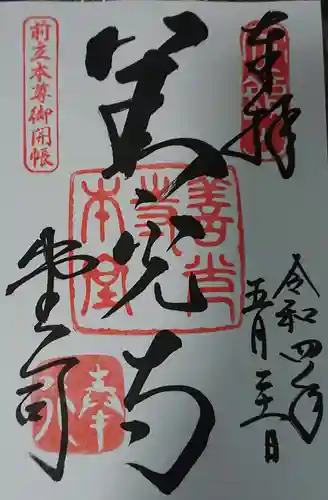 奉拝
令和四年
五月二十一日
善光寺
善光寺
本堂
堂司
前立本尊御開帳